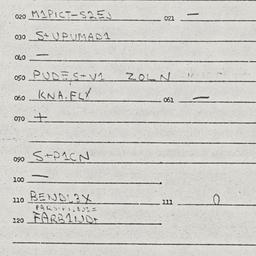 020 M1PICT-S2EJ 021 —
030 S+UPUMAD1
040 —
050 PUDE,S+V1 ZOLN
060 KNA.FLY 061 —
070 +
090 S+P1CN
100 —
110 BENDL3X 111 0
120 FARB1ND+